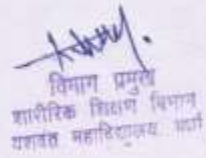 विभाग प्रमुख
शारीरिक शिक्षण विभाग
यशवंत महाविद्यालय वर्धा